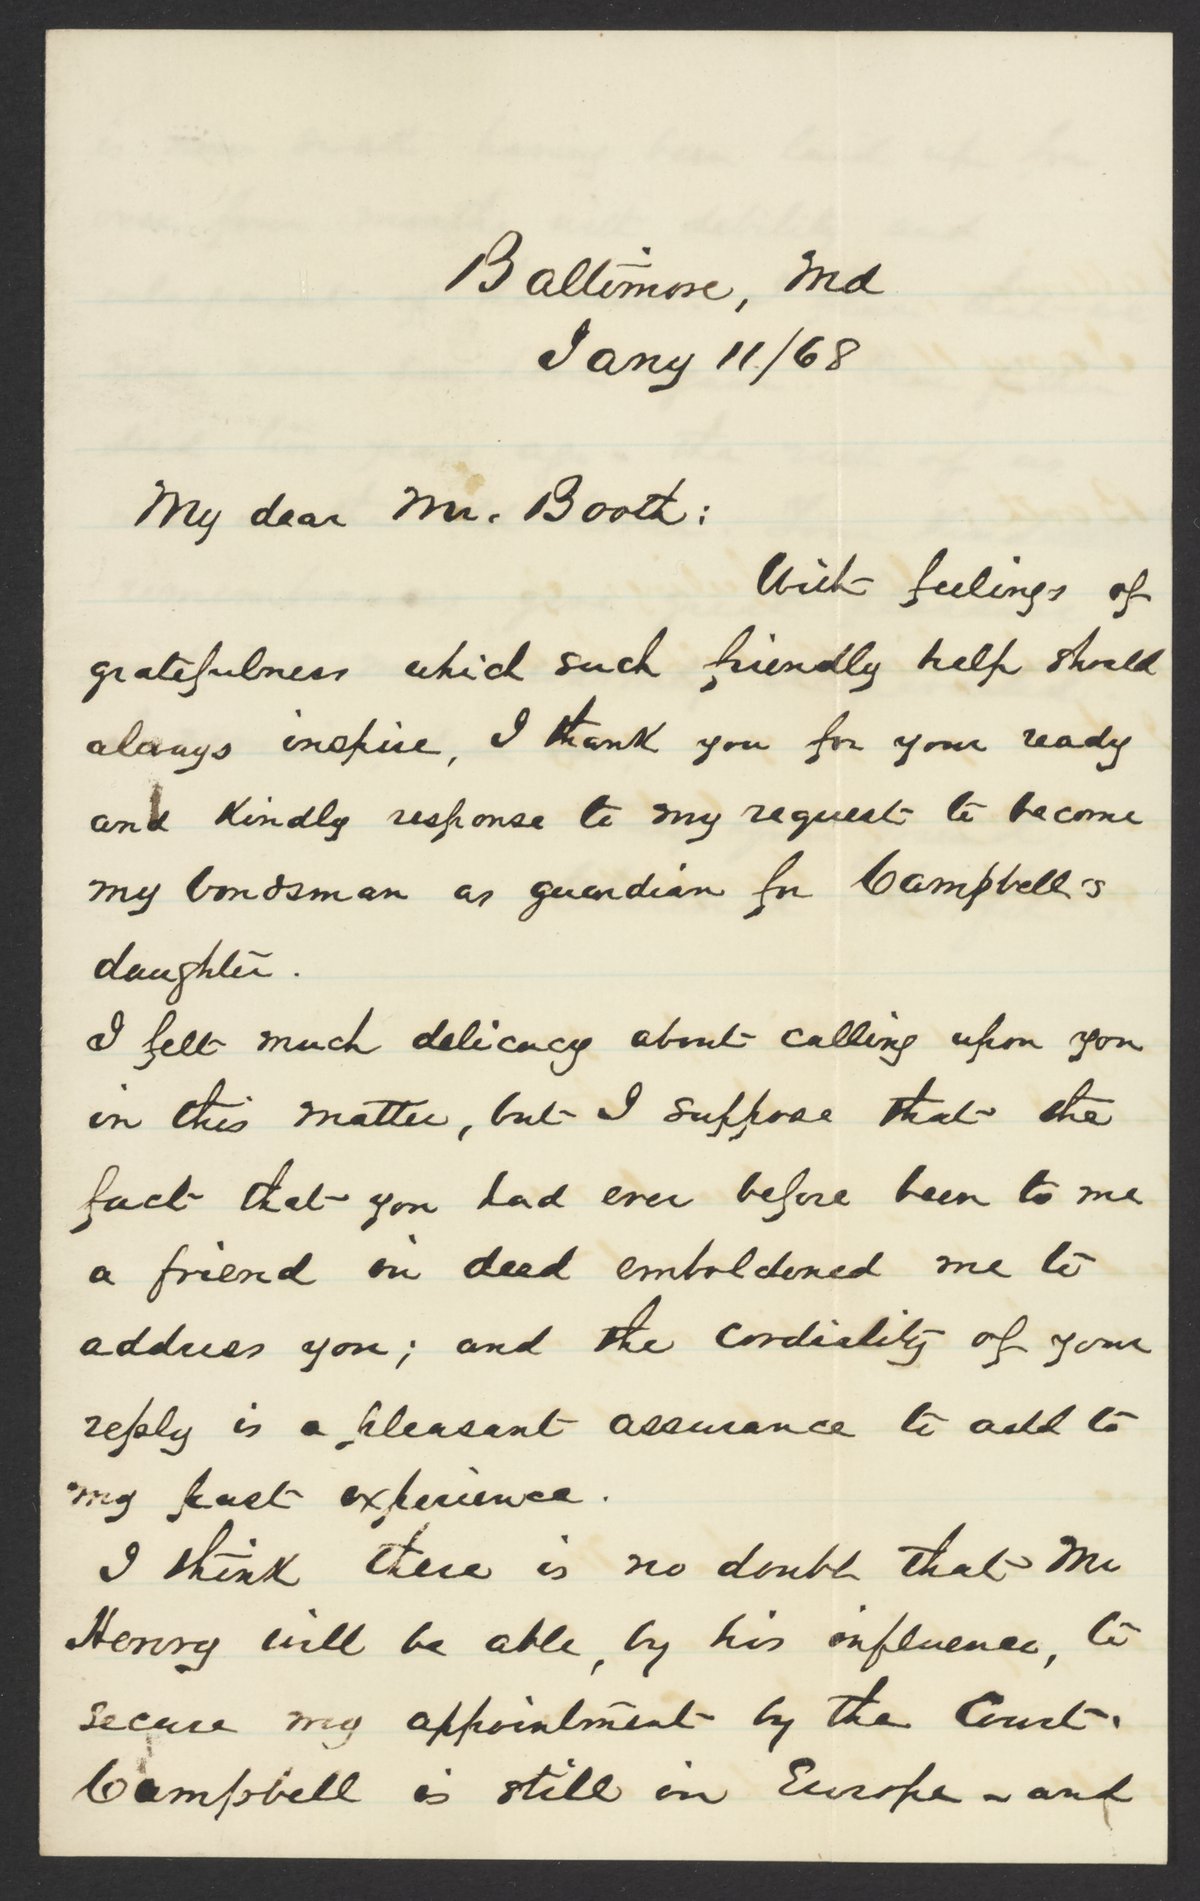 Baltimore, Md
Jany 11/68
My dear Mr. Booth:
With feelings of
gratefulness which such friendly help should
always inspire, I thank you for your ready
and kindly response to my request to become
my bondsman as guardian for Campbell's
daughter.
I felt much delicacy about calling upon you
in this matter, but I suppose that the
fact that you had ever before been to me
a friend in deed emboldened me to
address you; and the cordiality of your
reply is a pleasant assurance to add to
my past experience.
I think there is no doubt that Mr
Henry will be able, by his influence, to
secure my appointment by the Court.
Campbell is still in Europe - and